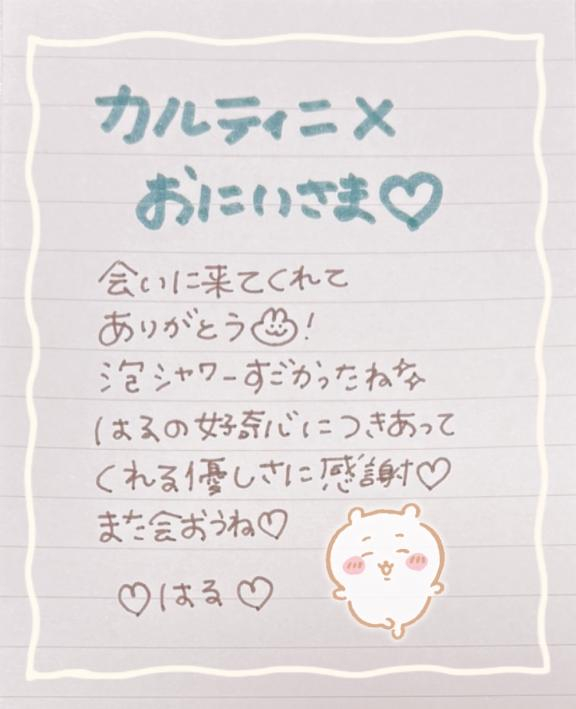 カルティニ×
おにいさま♡
会いに来てくれて
ありがとう!
泡シャワーすごかったね✨
はるの好奇心につきあって
くれる優しさに感謝♡
また会おうね♡
♡はる♡